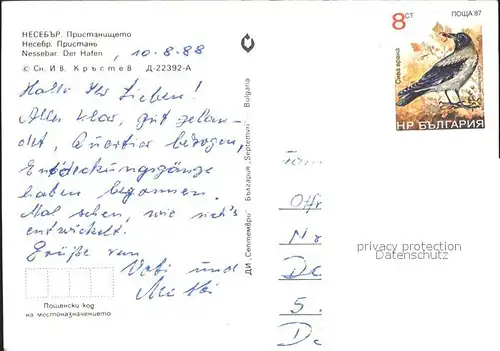 НЕСЕБЪР. Пристанището
Несебр. Пристань
Nessebar. Der Hafen
10.8.88
© Сн. И В. Кръстев Д-22392-А
Hallo Ihr Lieben!
Alles klar, gut gelan-
det, Quartier bezogen,
Entdeckungsgänge
haben begonnen.
Mal sehen, wie sich's
entwickelt.
Grüße von
und
Пощенски код
на местоназначението
ДИ „Септември" България „Septemvri" Bulgaria
8СТ
ПОЩА '87
Сива врана
НР БЪЛГАРИЯ
privacy protection
Datenschutz
Fam
Nr
5.